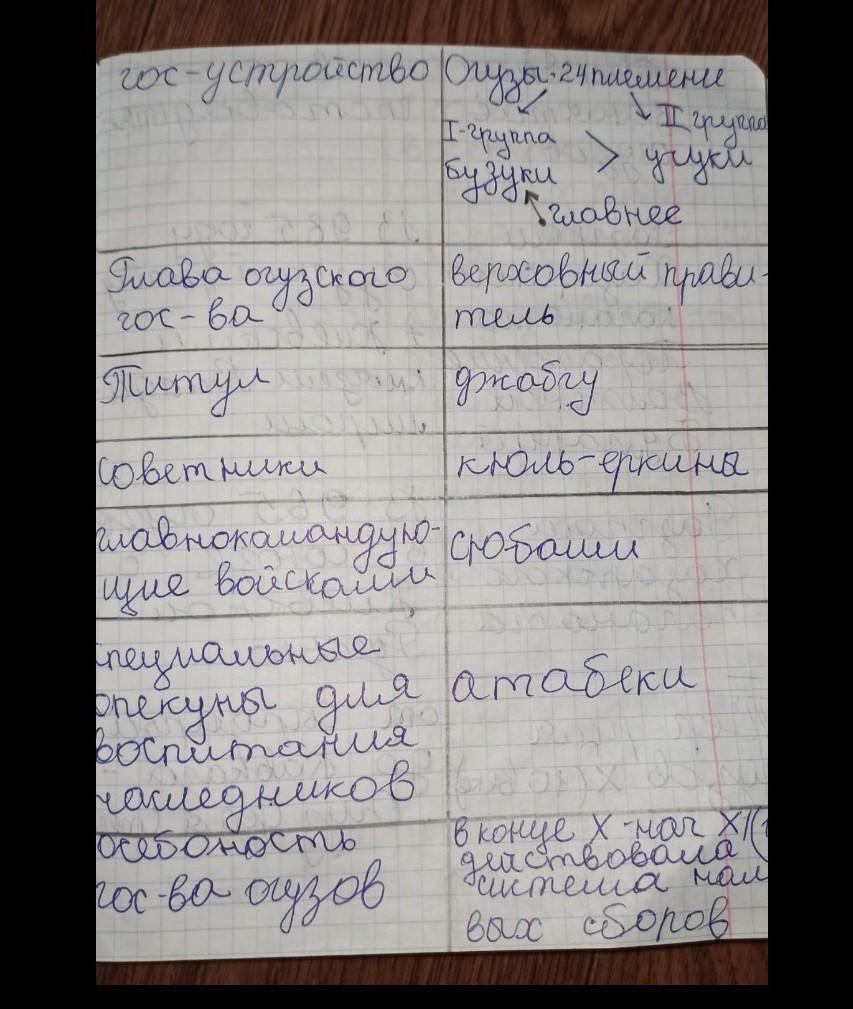 гос-устройство
Огузы·24племени
I-группа
бузуки
>
II группа
учуки
главнее
Глава огузского
гос-ва
верховный прави-
тель
Титул
джабгу
советники
кюль-еркины
главнокомандую-
щие войсками
сюбаши
специальные
опекуны для
воспитания
наследников
атабеки
осебоность
гос-ва огузов
в конце X-нач XI(
действовала (
система нал
вых сборов